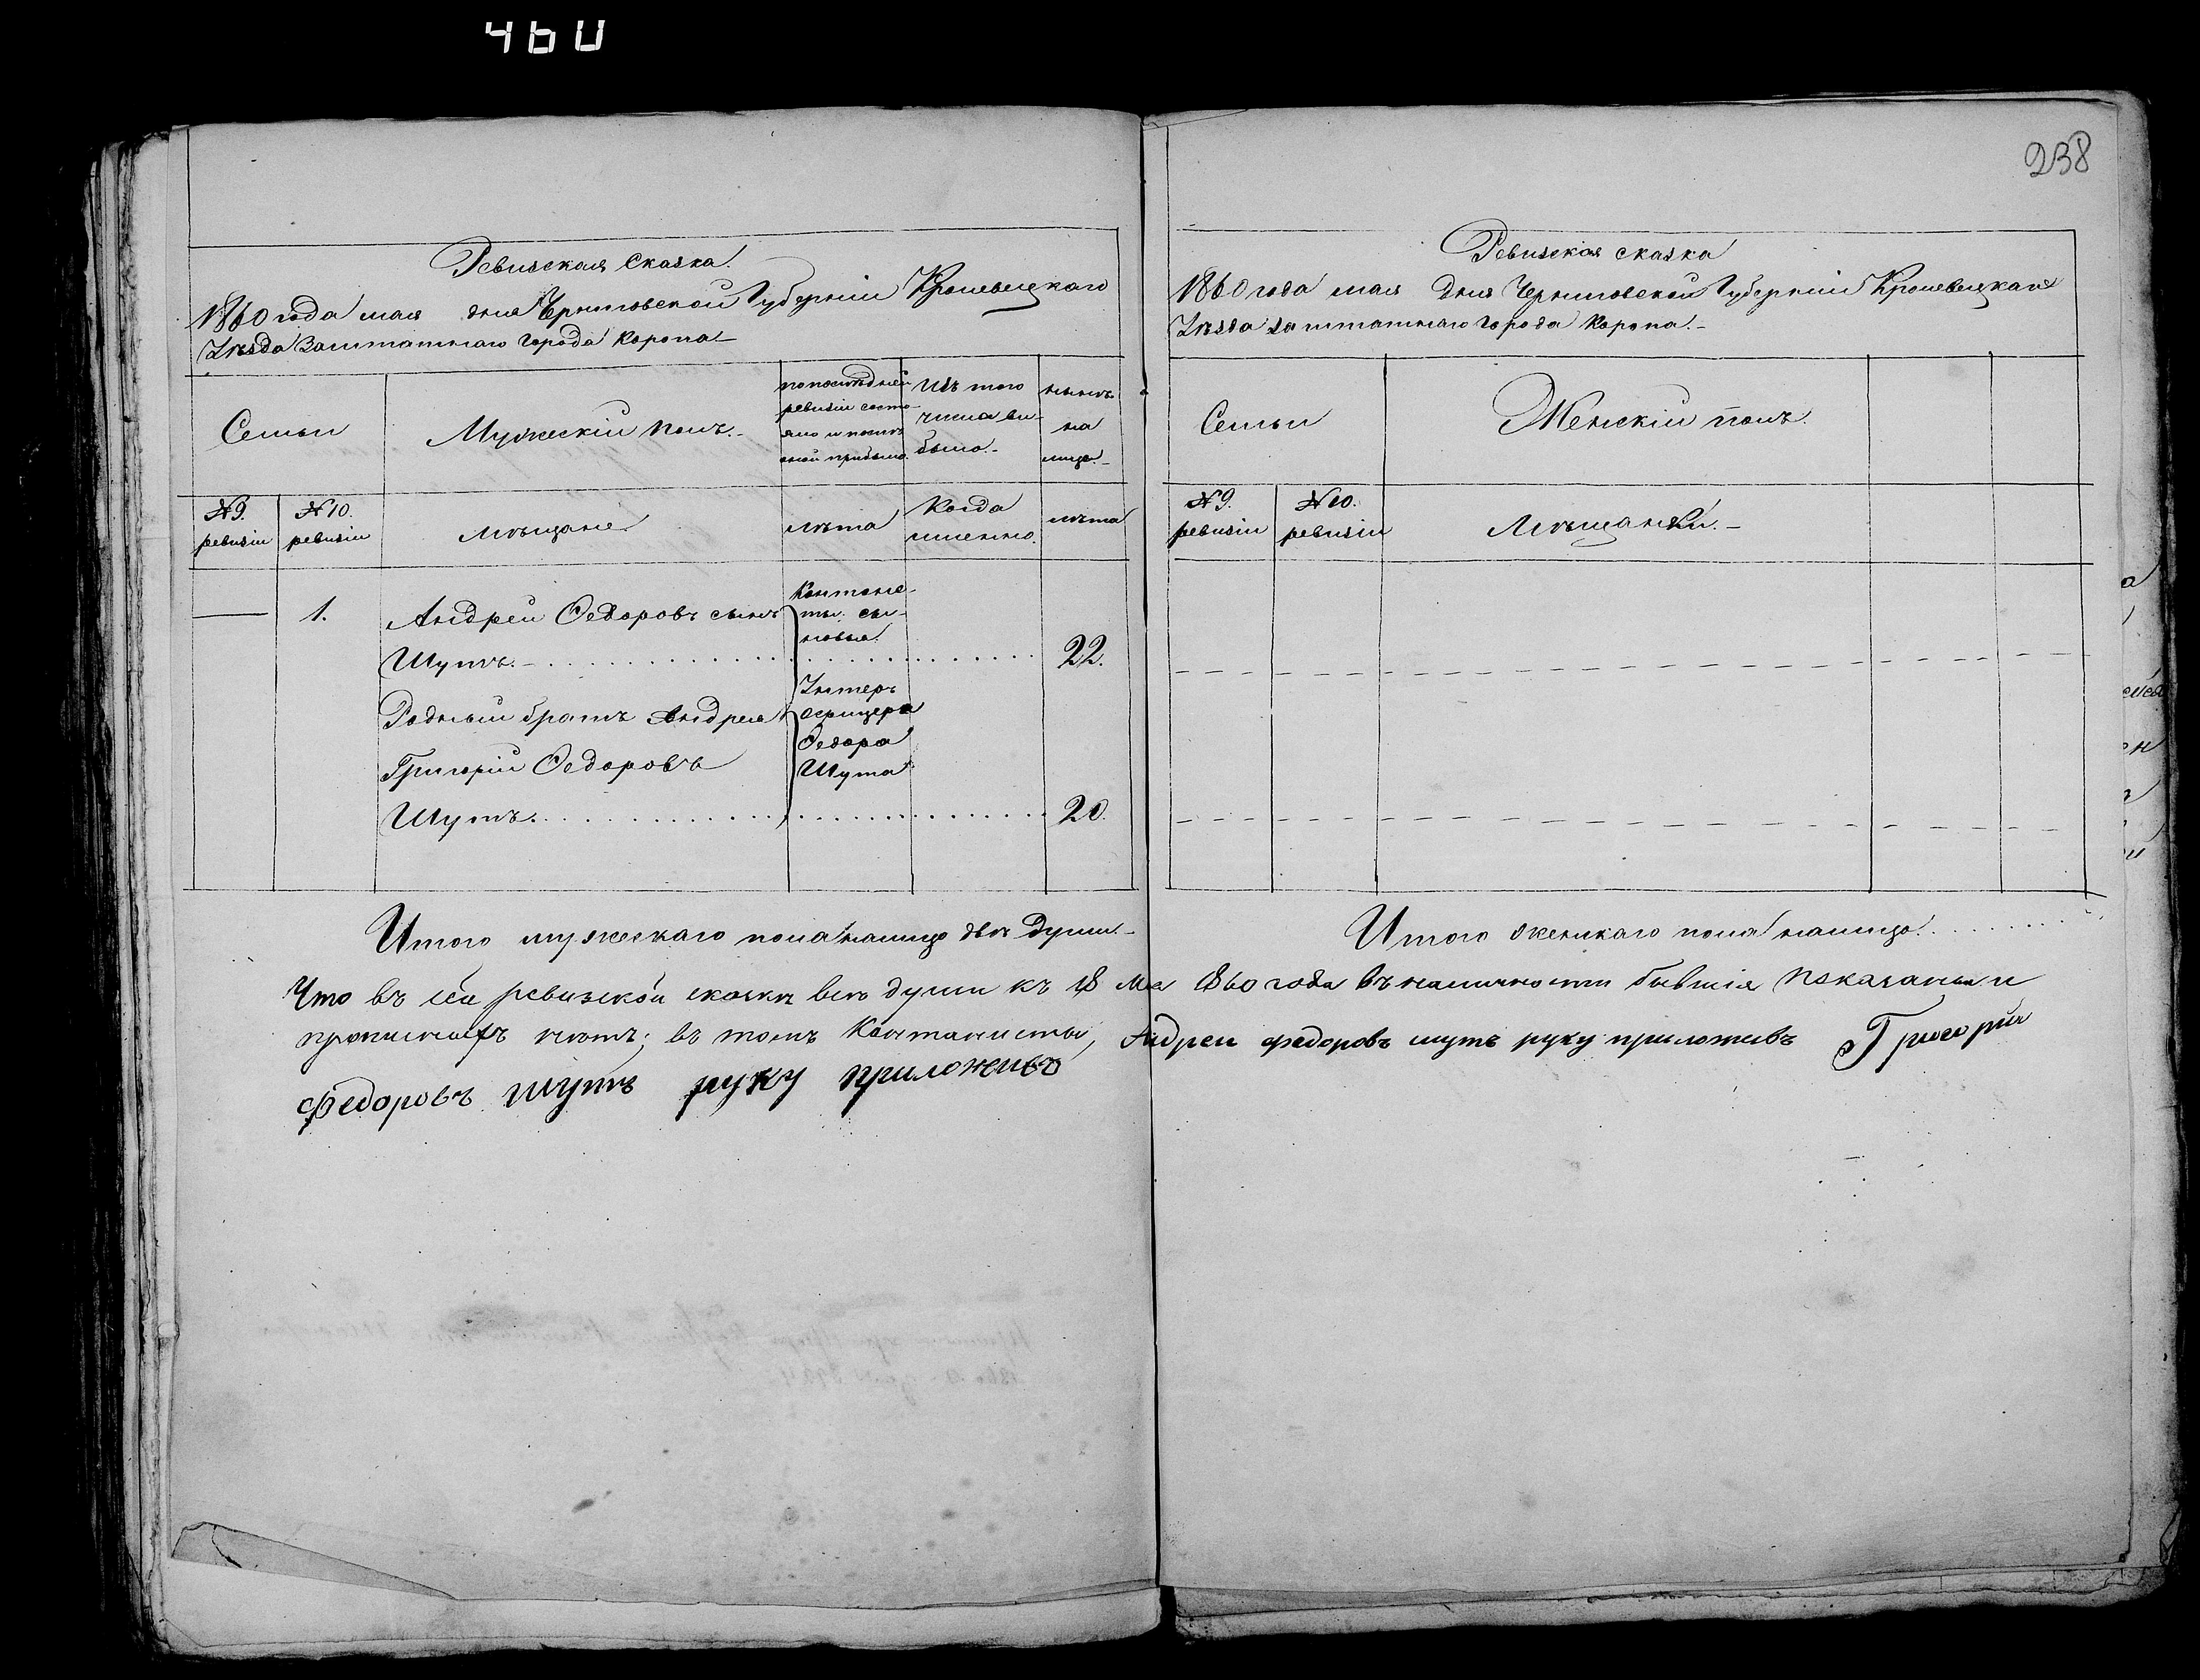 460
238
Ревизская Сказка.
1860 года мая дня Черниговской Губерніи Кролевецкаго
Уѣзда Заштатнаго города Коропа
Семьи
Мужескій полъ.
по послѣдней
ревизіи состо-
яло и послѣ
оной прибыло.
Изъ того
числа вы-
было.
нынѣ
на
лицо.
№ 9. ревизіи
№ 10. ревизіи
мѣщане
лѣта
Когда
именно.
лѣта
1.
Андрей Федоровъ сынъ
Шутъ. 22.
Родный братъ Андрея
Григорій Федоровъ
Шутъ. 20.
Кантонис-
ты: сы-
новья
Унтеръ
офицера
Федора
Шута
Итого мужескаго пола налицо двѣ души
Ревизская сказка
1860 года мая дня Черниговской Губерніи Кролевецкаго
Уѣзда заштатнаго города Коропа.
Семьи
Женскій полъ.
№ 9. ревизіи
№ 10. ревизіи
Мѣщанки.
Итого женскаго пола налицо
Что въ сей ревизской сказкѣ всѣ души къ 18 мая 1860 года въ наличности бывшія показаны и
прописныхъ нѣтъ; въ томъ Кантонисты, Андрей федоровъ шутъ руку приложивъ Григорій
федоровъ шутъ руку приложивъ